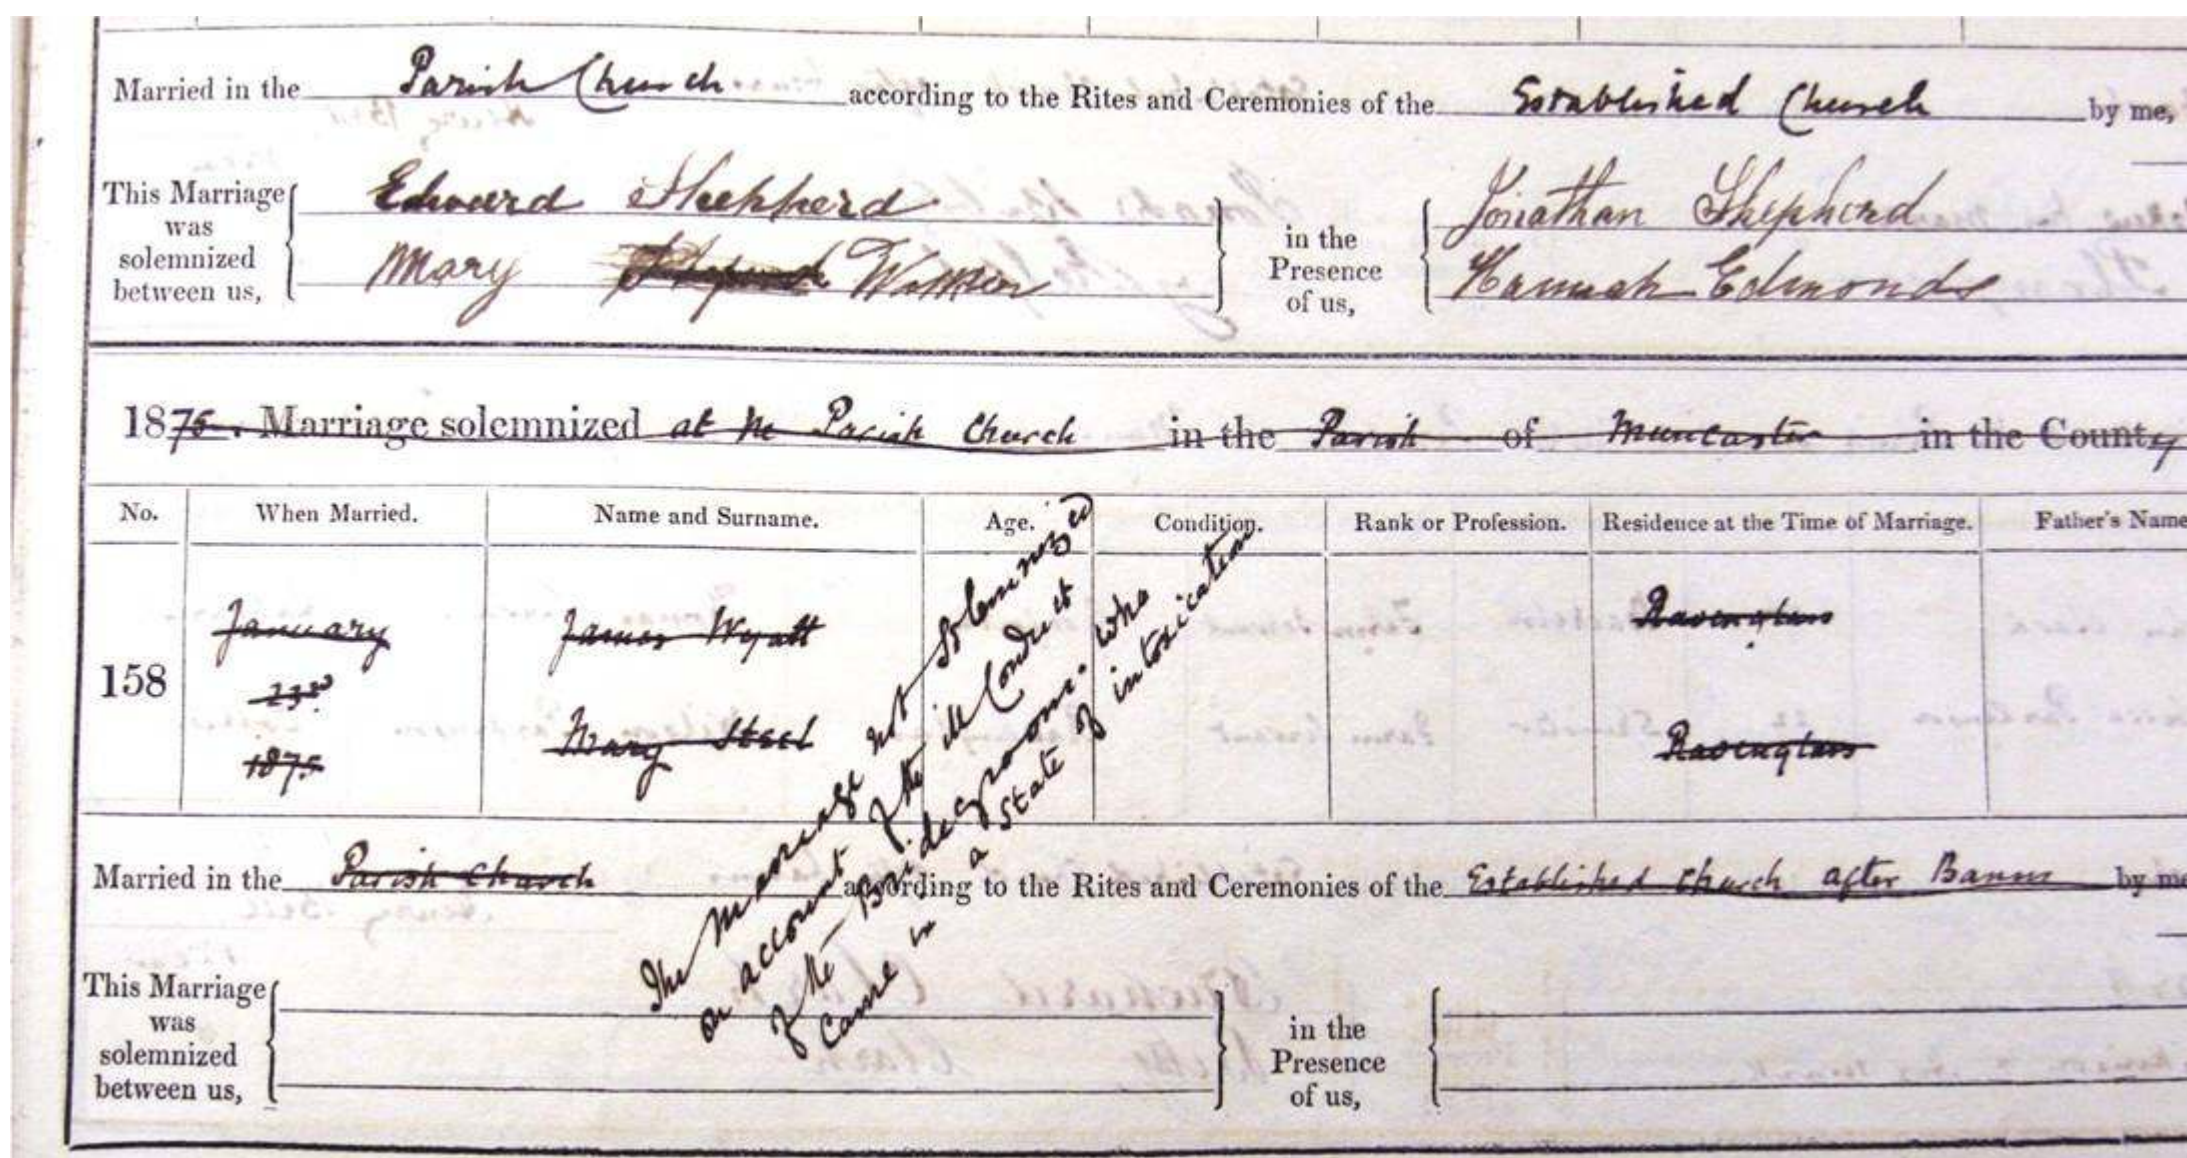 Married in the Parish Church according to the Rites and Ceremonies of the Established Church by me,
This Marriage was solemnized between us,
Edward Shepherd
Mary Walker
in the Presence of us,
Jonathan Shepherd
Hannah Edmonds
1875. Marriage solemnized at the Parish Church in the Parish of Muncaster in the County
No. When Married. Name and Surname. Age. Condition. Rank or Profession. Residence at the Time of Marriage. Father's Name
158
January
23rd
1875
James Wyatt
Mary Steel
Ravenglass
Ravenglass
The marriage not solemnized
on account of the ill Conduct
of the Bridegroom. who
came in a State of intoxication
Married in the Parish Church according to the Rites and Ceremonies of the Established Church after Banns by me
This Marriage was solemnized between us,
in the Presence of us,